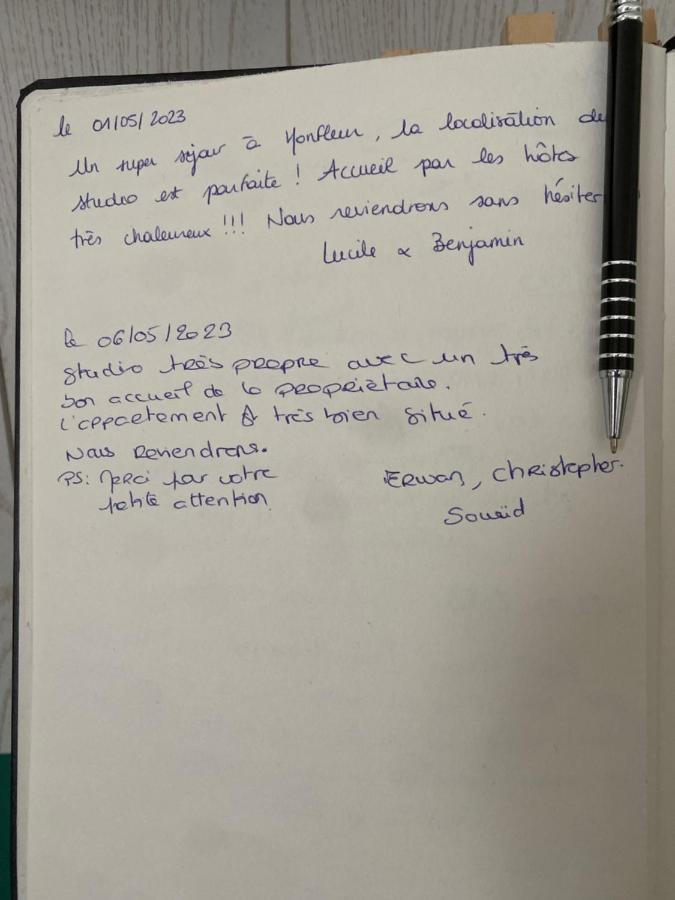 le 01/05/2023
Un super séjour à Honfleur, la localisation du
studio est parfaite ! Accueil par les hôtes
très chaleureux !!! Nous reviendrons sans hésiter
Lucile & Benjamin
le 06/05/2023
Studio très propre avec un très
bon accueil de la propriétaire.
L'appartement est très bien situé.
Nous Reviendrons.
PS: Merci pour votre
petite attention
Erwan, Christopher.
Souaïd